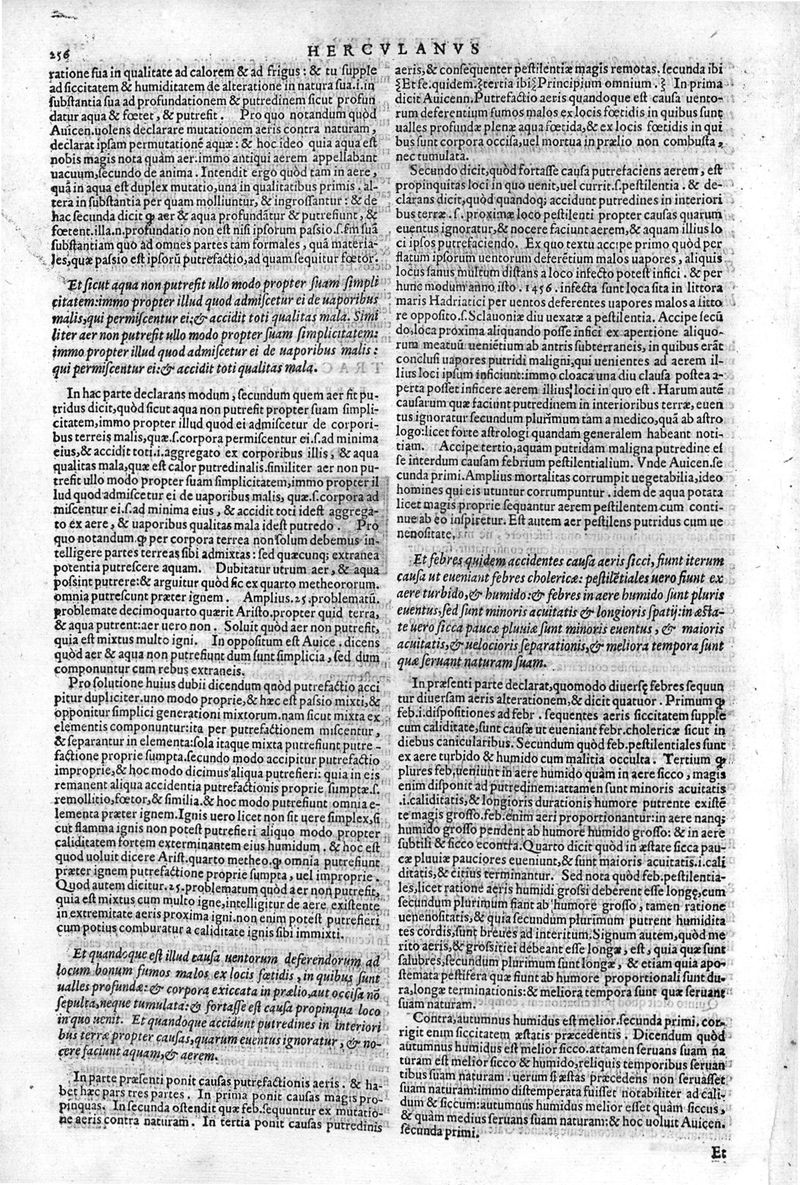 256
HERCVLANVS
ratione sua in qualitate ad calorem & ad frigus: & tu supple
ad siccitatem & humiditatem de alteratione in natura sua.i.in
substantia sua ad profundationem & putredinem sicut profun
datur aqua & fœtet, & putrefit. Pro quo notandum quòd
Auicen.uolens declarare mutationem aeris contra naturam,
declarat ipsam permutationē aquæ: & hoc ideo quia aqua est
nobis magis nota quàm aer.immo antiqui aerem appellabant
uacuum,secundo de anima. Intendit ergo quòd tam in aere,
quā in aqua est duplex mutatio,una in qualitatibus primis. al-
tera in substantia per quam molliuntur, & ingrossantur: & de
hac secunda dicit ꝙ aer & aqua profundātur & putrefiunt, &
fœtent.illa.n.profundatio non est nisi ipsorum passio.s.fm̄ suā
substantiam quo ad omnes partes tam formales, quā materia-
les,quæ passio est ipsorū putrefactio,ad quam sequitur fœtor.
Et sicut aqua non putrefit ullo modo propter suam simpli
citatem:immo propter illud quod admiscetur ei de uaporibus
malis,qui permiscentur ei:& accidit toti qualitas mala. Simi
liter aer non putrefit ullo modo propter suam simplicitatem:
immo propter illud quod admiscetur ei de uaporibus malis:
qui permiscentur ei:& accidit toti qualitas mala.
In hac parte declarans modum, secundum quem aer fit pu-
tridus dicit,quòd sicut aqua non putrefit propter suam simpli-
citatem,immo propter illud quod ei admiscetur de corpori-
bus terreis malis,quæ.s.corpora permiscentur ei.s.ad minima
eius,& accidit toti.i.aggregato ex corporibus illis, & aqua
qualitas mala,quæ est calor putredinalis.similiter aer non pu-
trefit ullo modo propter suam simplicitatem,immo propter il
lud quod admiscetur ei de uaporibus malis, quæ.s.corpora ad
miscentur ei.s.ad minima eius, & accidit toti idest aggrega-
to ex aere, & uaporibus qualitas mala idest putredo. Pro
quo notandum.ꝙ per corpora terrea non solum debemus in-
telligere partes terreas sibi admixtas: sed quæcunq; extranea
potentia putrescere aquam. Dubitatur utrum aer, & aqua
possint putrere:& arguitur quòd sic ex quarto metheororum.
omnia putrescunt præter ignem. Amplius.25.problematū.
problemate decimoquarto quærit Aristo.propter quid terra,
& aqua putrent:aer uero non. Soluit quòd aer non putrefit,
quia est mixtus multo igni. In oppositum est Auice. dicens
quòd aer & aqua non putrefiunt dum sunt simplicia, sed dum
componuntur cum rebus extraneis.
Pro solutione huius dubii dicendum quòd putrefactio acci
pitur dupliciter.uno modo proprie,& hæc est passio mixti,&
opponitur simplici generationi mixtorum.nam sicut mixta ex
elementis componuntur:ita per putrefactionem miscentur,
& separantur in elementa:sola itaque mixta putrefiunt putre-
factione proprie sumpta.secundo modo accipitur putrefactio
improprie,& hoc modo dicimus aliqua putrefieri: quia in eis
remanent aliqua accidentia putrefactionis proprie sumptæ.s.
remollitio,fœtor,& similia.& hoc modo putrefiunt omnia e-
lementa præter ignem.Ignis uero licet non sit uere simplex,si
cut flamma ignis non potest putrefieri aliquo modo propter
caliditatem fortem exterminantem eius humidum. & hoc est
quod uoluit dicere Arist.quarto metheo.ꝙ omnia putrefiunt
præter ignem putrefactione propria sumpta, uel improprie.
Quod autem dicitur.25.problematum quòd aer non putrefit,
quia est mixtus cum multo igne,intelligitur de aere existente
in extremitate aeris proxima igni.non enim potest putrefieri
cum potius comburatur a caliditate ignis sibi immixti.
Et quandoque est illud causa uentorum deferendorum ad
locum bonum fumos malos ex locis fœtidis, in quibus sunt
ualles profundæ:& corpora exiccata in prælio,aut occisa nō
sepulta,neque tumulata:& fortasse est causa propinqua loco
in quo uenit. Et quandoque accidunt putredines in interiori
bus terræ propter causas,quarum euentus ignoratur, & no-
cere faciunt aquam,& aerem.
In parte præsenti ponit causas putrefactionis aeris. & ha-
bet hæc pars tres partes. In prima ponit causas magis pro-
pinquas. In secunda ostendit quæ feb.sequuntur ex mutatio-
ne aeris contra naturam. In tertia ponit causas putredinis
aeris,& consequenter pestilentiæ magis remotas.secunda ibi
Et fe.quidem. tertia ibi Principium omnium. In prima
dicit Auicenn.Putrefactio aeris quandoque est causa uento-
rum deferentium fumos malos ex locis fœtidis in quibus sunt
ualles profundæ plenæ aqua fœtida,& ex locis fœtidis in qui
bus sunt corpora occisa,uel mortua in prælio non combusta,
nec tumulata.
Secundo dicit,quòd fortasse causa putrefaciens aerem, est
propinquitas loci in quo uenit,uel currit.s.pestilentia. & de-
clarans dicit,quòd quandoq; accidunt putredines in interiori
bus terræ.s.proximæ loco pestilenti propter causas quarum
euentus ignoratur,& nocere faciunt aerem,& aquam illius lo
ci ipsos putrefaciendo. Ex quo textu accipe primo quòd per
flatum ipsorum uentorum deferētium malos uapores, aliquis
locus sanus multum distans a loco infecto potest infici. & per
hunc modum anno isto. 1456. infecta sunt loca sita in littora
maris Hadriatici per uentos deferentes uapores malos a litto
re opposito.s.Sclauoniæ diu uexatæ a pestilentia. Accipe secū
do,loca proxima aliquando posse infici ex apertione aliquo-
rum meatuū ueniētium ab antris subterraneis,in quibus erāt
conclusi uapores putridi maligni,qui uenientes ad aerem il-
lius loci ipsum inficiunt:immo cloaca una diu clausa postea a-
perta posset inficere aerem illius loci in quo est. Harum autē
causarum quæ faciunt putredinem in interioribus terræ, euen
tus ignoratur secundum plurimum tam a medico,quā ab astro
logo:licet forte astrologi quandam generalem habeant noti-
tiam. Accipe tertio,aquam putridam maligna putredine es
se interdum causam febrium pestilentialium. Vnde Auicen.se
cunda primi.Amplius mortalitas corrumpit uegetabilia,ideo
homines qui eis utuntur corrumpuntur. idem de aqua potata
licet magis proprie sequantur aerem pestilentem cum conti-
nue ab eo inspiretur. Est autem aer pestilens putridus cum ue
nenositate.
Et febres quidem accidentes causa aeris sicci, fiunt iterum
causa ut eueniant febres cholericæ: pestilētiales uero fiunt ex
aere turbido,& humido:& febres in aere humido sunt pluris
euentus,sed sunt minoris acuitatis & longioris spatij:in æsta-
te uero sicca paucæ pluuiæ sunt minoris euentus, & maioris
acuitatis,& uelocioris separationis,& meliora tempora sunt
quæ seruant naturam suam.
In præsenti parte declarat,quomodo diuersę febres sequun
tur diuersam aeris alterationem,& dicit quatuor. Primum ꝙ
feb.i.dispositiones ad febr. sequentes aeris siccitatem supple
cum caliditate,sunt causæ ut eueniant febr.cholericæ sicut in
diebus canicularibus. Secundum quòd feb.pestilentiales sunt
ex aere turbido & humido cum malitia occulta. Tertium ꝙ
plures feb,ueniunt in aere humido quàm in aere sicco, magis
enim disponit ad putredinem:attamen sunt minoris acuitatis
.i.caliditatis,& longioris durationis humore putrente existē
te magis grosso.feb.enim aeri proportionantur:in aere nanq;
humido grosso pendent ab humore humido grosso: & in aere
subtili & sicco econtra.Quarto dicit quòd in æstate sicca pau-
cæ pluuiæ pauciores eueniunt,& sunt maioris acuitatis.i.cali
ditatis,& citius terminantur. Sed nota quòd feb.pestilentia-
les,licet ratione aeris humidi grossi deberent esse longę,cum
secundum plurimum fiant ab humore grosso, tamen ratione
uenenositatis,& quia secundum plurimum putrent humidita
tes cordis,sunt breues ad interitum.Signum autem,quòd me
rito aeris,& grossitiei debeant esse longæ, est, quia quæ sunt
salubres,secundum plurimum sunt longæ, & etiam quia apo-
stemata pestifera quæ fiunt ab humore proportionali sunt du-
ra,longæ terminationis:& meliora tempora sunt quæ seruant
suam naturam.
Contra,autumnus humidus est melior.secunda primi, cor-
rigit enim siccitatem æstatis præcedentis. Dicendum quòd
autumnus humidus est melior sicco.attamen seruans suam na
turam est melior sicco & humido,reliquis temporibus seruan
tibus suam naturam. uerum si æstas præcedens non seruasset
suam naturam:immo distemperata fuisset notabiliter ad cali-
dum & siccum:autumnus humidus melior esset quàm siccus,
& quàm medius seruans suam naturam:& hoc uoluit Auicen.
secunda primi.
Et